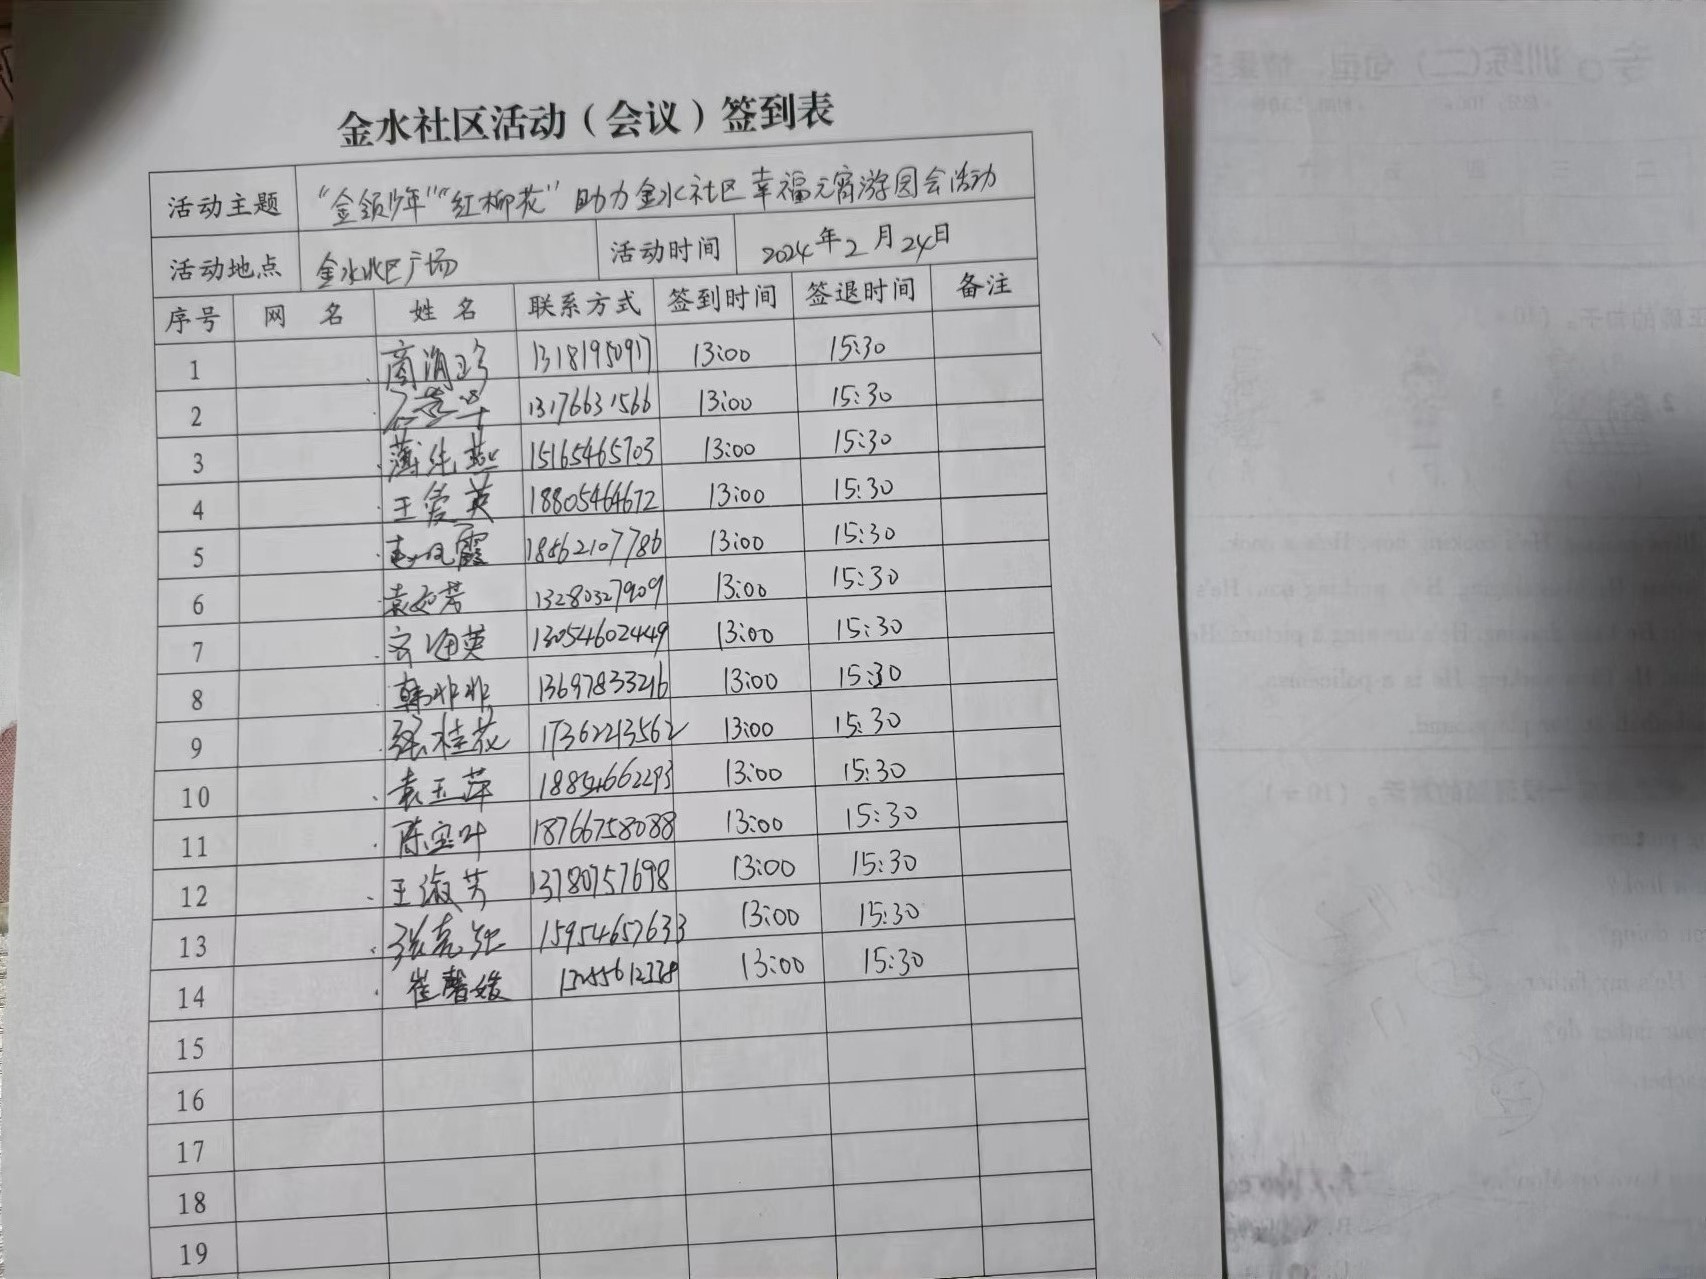 金水社区活动（会议）签到表
活动主题 “金领少年”“红柳花”助力金水社区幸福元宵游园会活动
活动地点 金水社区广场 活动时间 2024年2月24日
序号 网名 姓名 联系方式 签到时间 签退时间 备注
1 13181950917 13:00 15:30
2 13176631566 13:00 15:30
3 薄纯燕 15165465703 13:00 15:30
4 王爱英 18805464672 13:00 15:30
5 赵凤霞 18562107786 13:00 15:30
6 袁如芳 13280327909 13:00 15:30
7 齐海英 13054602449 13:00 15:30
8 韩非非 13697833216 13:00 15:30
9 张桂花 17362213562 13:00 15:30
10 袁玉萍 18854662293 13:00 15:30
11 陈宝叶 18766758088 13:00 15:30
12 王淑芳 13780757698 13:00 15:30
13 15954657633 13:00 15:30
14 崔馨媛 13:00 15:30
15
16
17
18
19